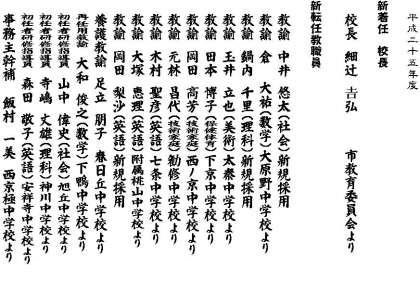 平成二十五年度
新着任　校長
校長　細辻　吉弘　市教育委員会より
新転任教職員
教諭　中井　悠太(社会)新規採用
教諭　倉　大祐(数学)大原野中学校より
教諭　鍋内　千里(理科)新規採用
教諭　玉井　立也(美術)太秦中学校より
教諭　田本　博子(保健体育)下京中学校より
教諭　岡田　高芳(技術家庭)西ノ京中学校より
教諭　元林　昌代(技術家庭)勧修中学校より
教諭　木村　聖彦(英語)七条中学校より
教諭　大塚　恵理(英語)附属桃山中学校より
教諭　岡田　梨沙(英語)新規採用
養護教諭　足立　朋子　春日丘中学校より
再任用教諭　大和　俊之(数学)下鴨中学校より
初任者研修指導員　山中　偉史(社会)旭丘中学校より
初任者研修指導員　寺嶋　丈雄(理科)神川中学校より
初任者研修指導員　森田　敬子(英語)安祥寺中学校より
事務主幹補　飯村　一美　西京極中学校より